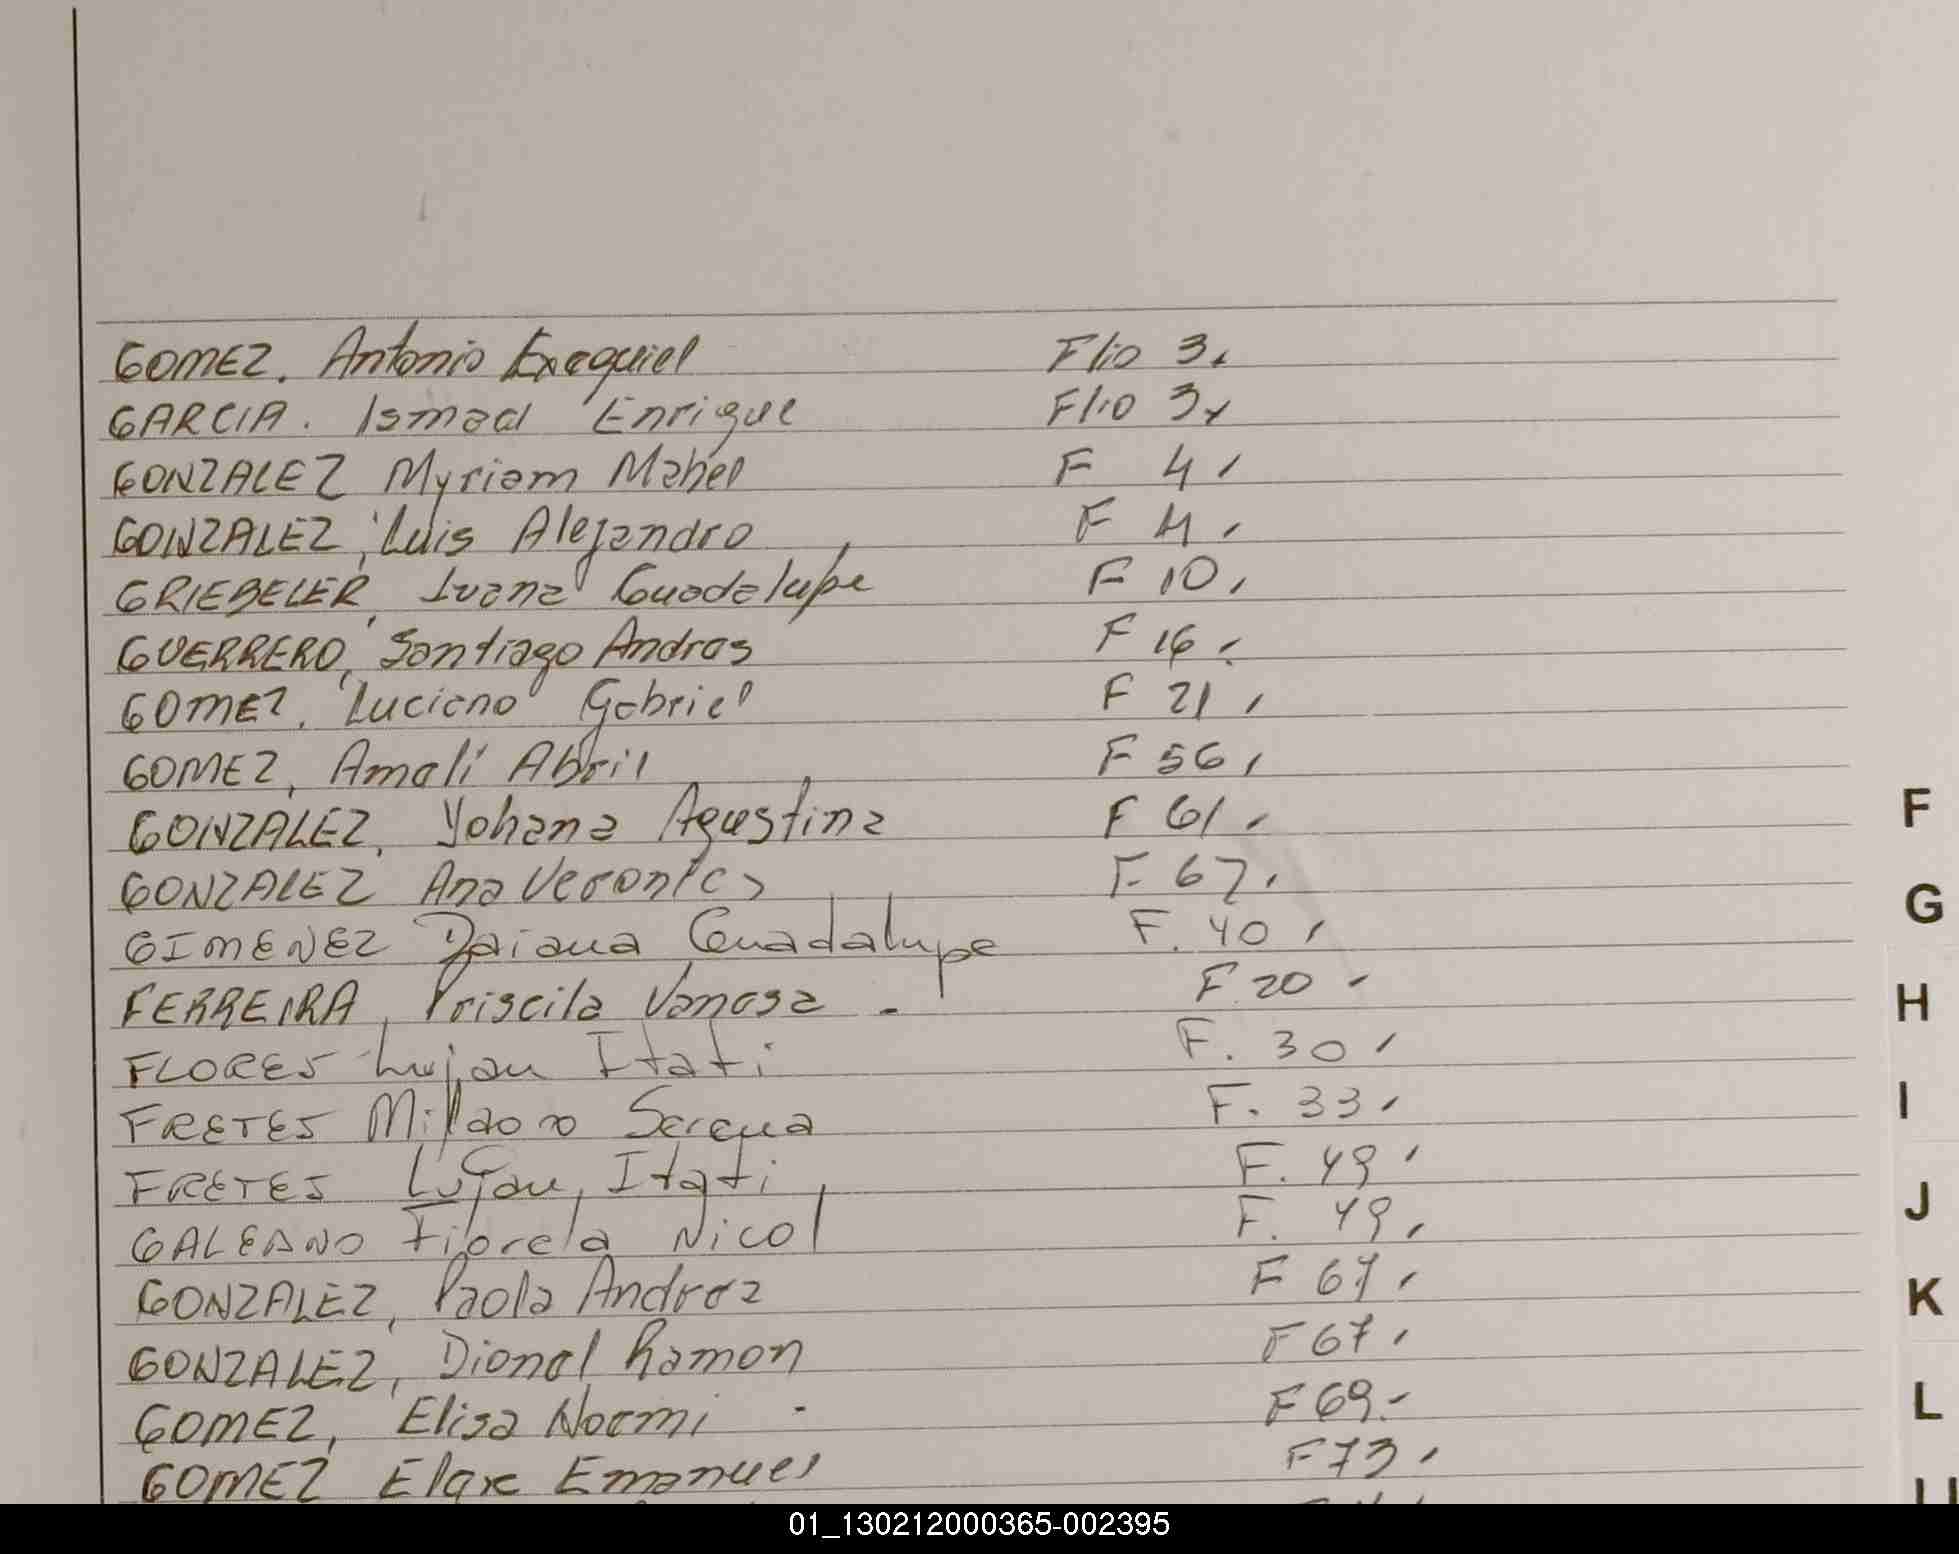 GOMEZ, Antonio Exequiel Flio 3.
GARCIA. Ismael Enrique Flio 3.
GONZALEZ Myriam Mabel F 4,
GONZALEZ, Luis Alejandro F 4,
GRIEBELER, Ivana Guadalupe F 10,
GUERRERO, Santiago Andres F 16,
GOMEZ, Luciano Gabriel F 21,
GOMEZ, Amali Abril F 56,
GONZALEZ, Yohana Agustina F 61,
GONZALEZ Ana Veronica F. 67,
GIMENEZ Daiana Guadalupe F. 40,
FERREIRA, Priscila Vanesa - F 20,
FLORES Lujan Itati F. 30,
FRETES Serena F. 33,
FRETES Lujan, Itati F. 49,
GALEANO Fiorela Nicol F. 49,
GONZALEZ, Paola Andrea F 67,
GONZALEZ, Dionel Ramon F 67,
GOMEZ, Elisa Noemi - F 69.
GOMEZ Emanuel F 73,
F
G
H
I
J
K
L
01_130212000365-002395